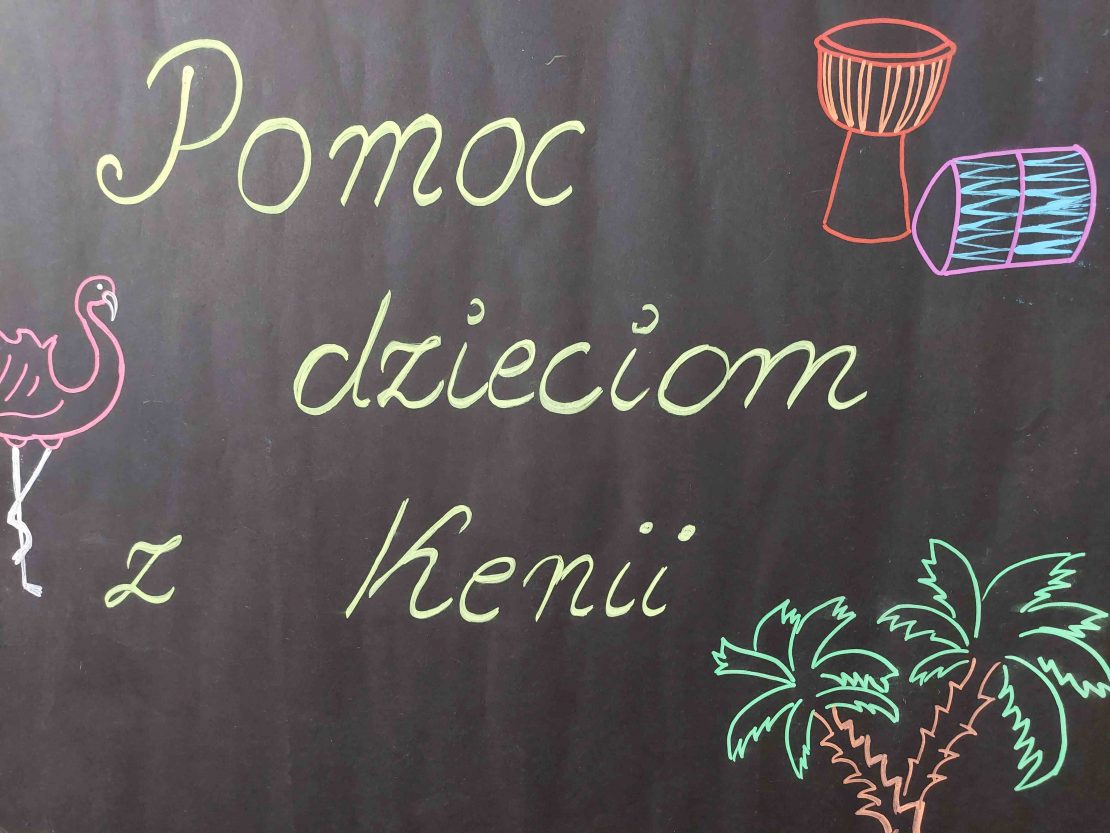 Pomoc
dzieciom
z Kenii